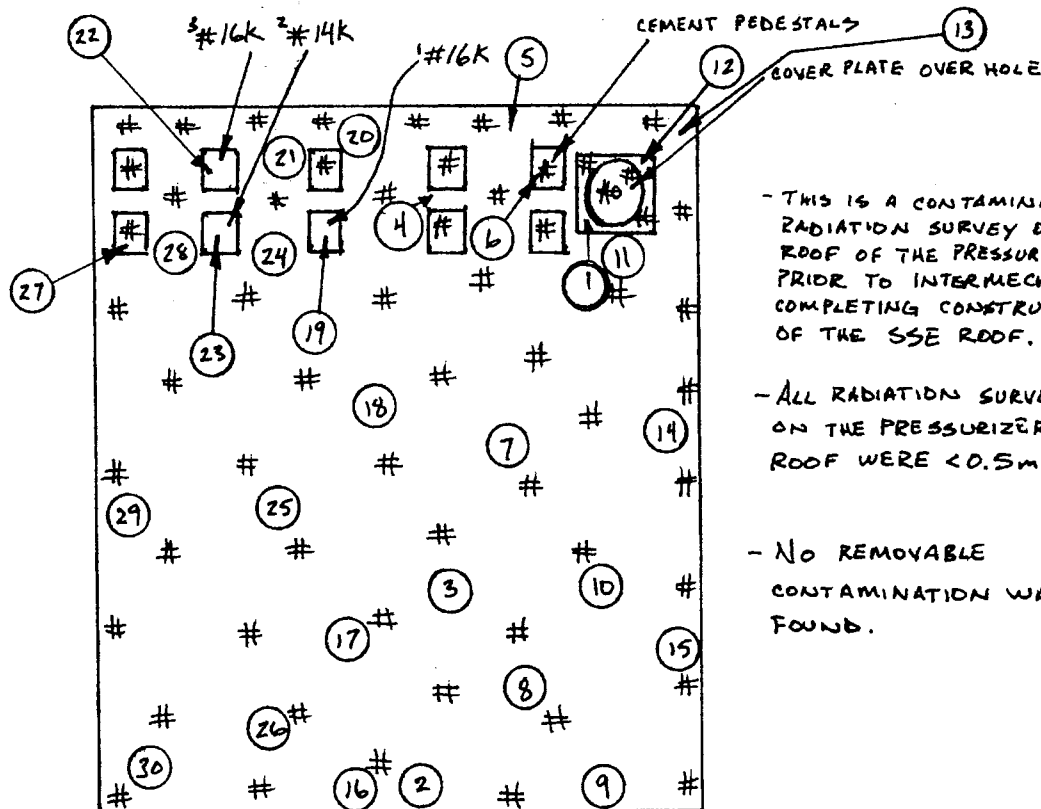 22
³#16K ²#14K
¹#16K
5
CEMENT PEDESTALS
13
12
COVER PLATE OVER HOLE
# # # # # # # #
21
20
# # # # # #
# # # #
4
6
# # # # #
27
28
24
11
1
# # # # # #
23
19
# # # #
18
# #
7
14
# # # # #
29
25
# # # #
3
10
#
# # # #
17
15
8
# # # # #
26
30
# # # # #
16
2
9
- THIS IS A CONTAMINA
RADIATION SURVEY
ROOF OF THE PRESSUR
PRIOR TO INTERMECH
COMPLETING CONSTRU
OF THE SSE ROOF.
- ALL RADIATION SURVE
ON THE PRESSURIZER
ROOF WERE <0.5m
- NO REMOVABLE
CONTAMINATION WA
FOUND.